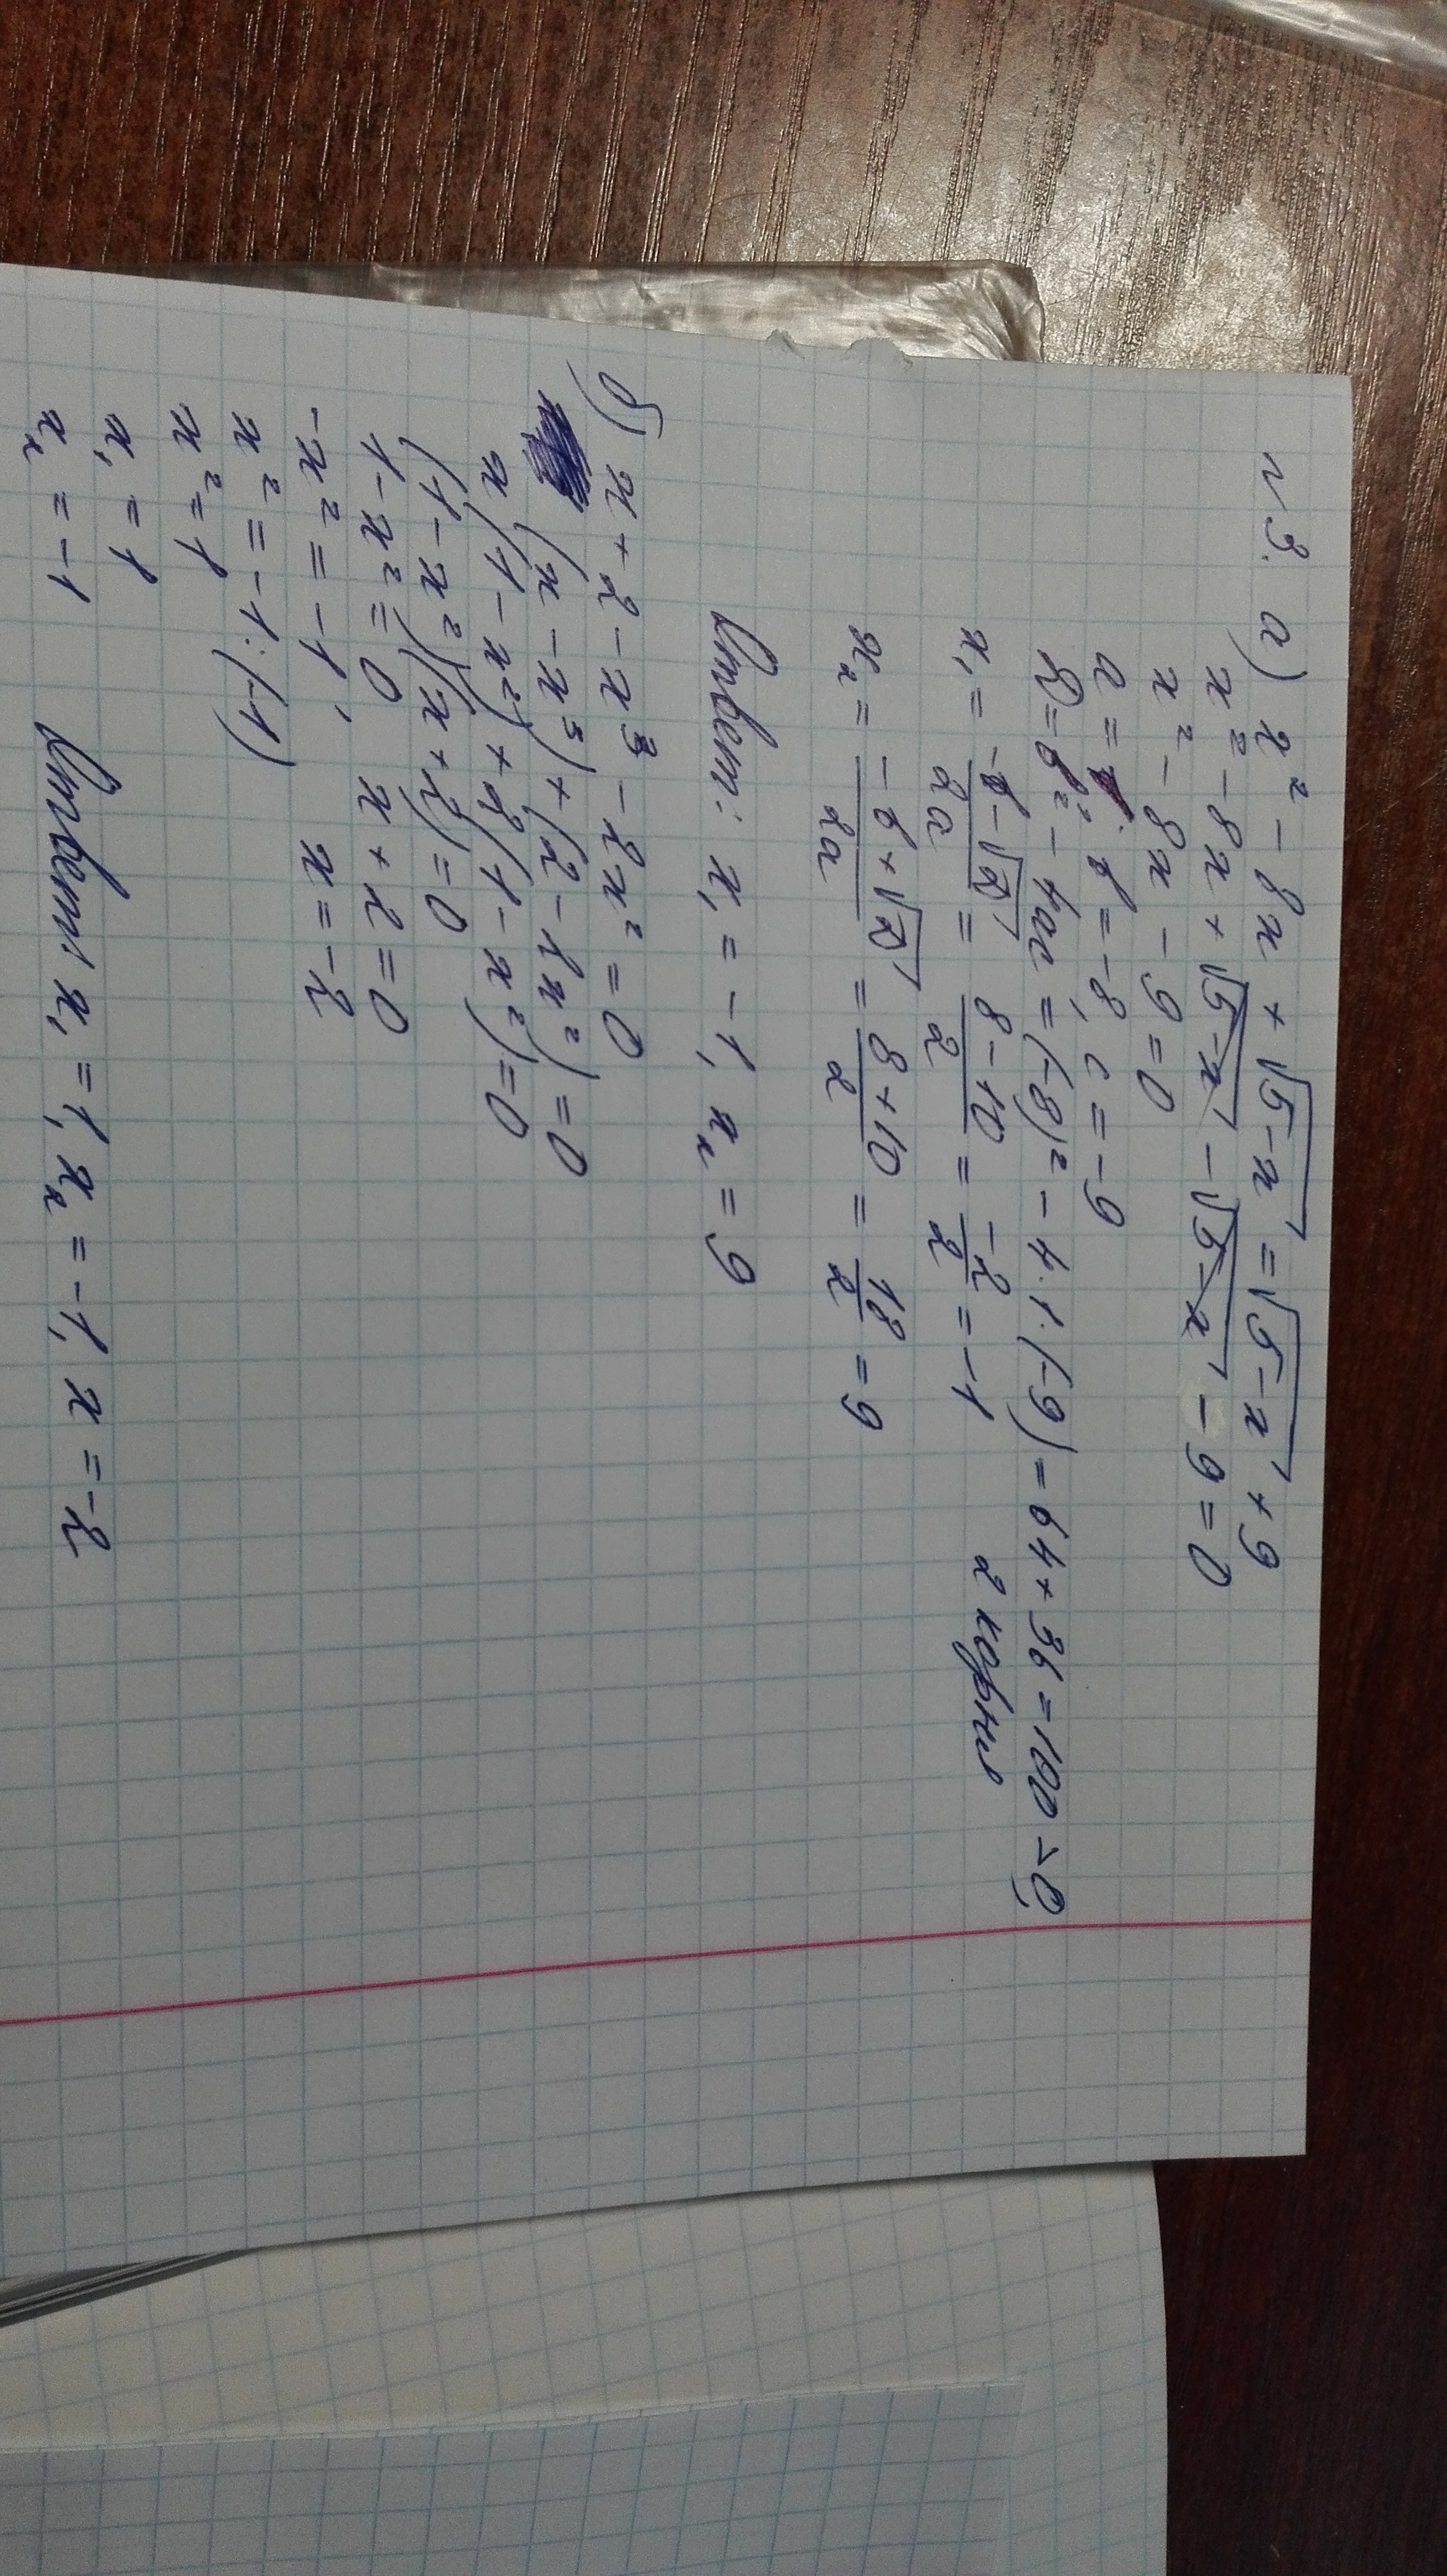 №3. а) x² - 8x + √5-x = √5-x + 9
x² - 8x + √5-x - √5-x - 9 = 0
x² - 8x - 9 = 0
a = 1, b = -8, c = -9
D = b² - 4ac = (-8)² - 4·1·(-9) = 64 + 36 = 100 > 0,
2 корня
x₁ = -b-√D/2a = 8-10/2 = -2/2 = -1
x₂ = -b+√D/2a = 8+10/2 = 18/2 = 9
Ответ: x₁ = -1, x₂ = 9
б) x + 2 - x³ - 2x² = 0
(x - x³) + (2 - 2x²) = 0
x(1 - x²) + 2(1 - x²) = 0
(1 - x²)(x + 2) = 0
1 - x² = 0, x + 2 = 0
-x² = -1 x = -2
x² = -1:(-1)
x² = 1
x₁ = 1
x₂ = -1
Ответ x₁ = 1, x₂ = -1, x = -2